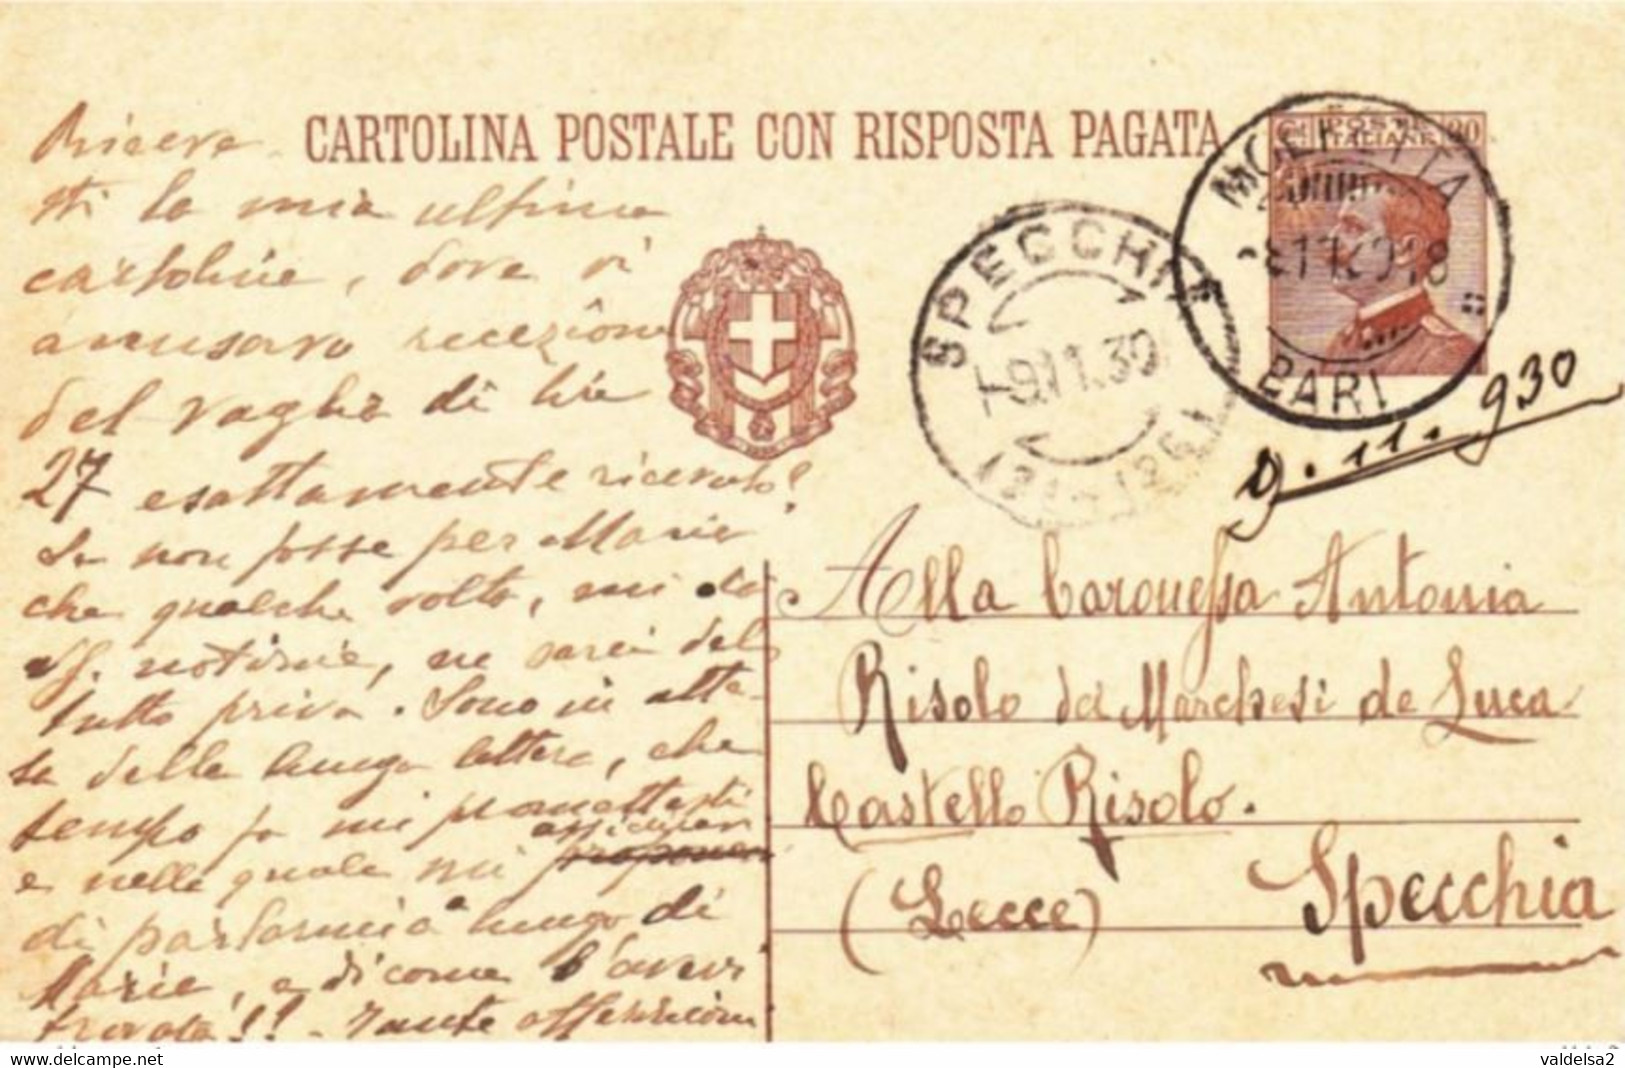 CARTOLINA POSTALE CON RISPOSTA PAGATA
Riceve
sti la mia ultima
cartolina, dove vi
accusavo recezione
del vaglia di lire
27 esattamente ricevuto?
Se non fosse per Maria
che qualche volta, mi dà
notizie, ne sarei del
tutto priva. Sono in atte-
sa della lunga lettera, che
tempo fa mi promettesti
e nella quale mi
assicuravi
di parlarmi a lungo di
Maria, e di come l'avevi
trovata!! - Tante affezioni
MOLFETTA
BARI
SPECCHIA
9.11.30
9.11.930
Alla Baronessa Antonia
Risolo dei Marchesi de Luca
Castello Risolo.
(Lecce) Specchia
delcampe.net
valdelsa2